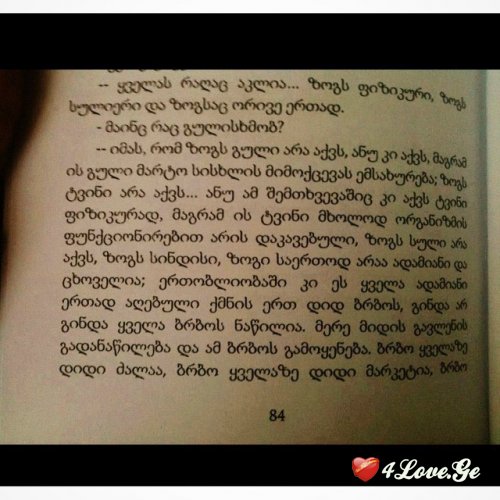 -- ყველას რაღაც აკლია... ზოგს ფიზიკური, ზოგს
სულიერი და ზოგსაც ორივე ერთად.
- მაინც რაც გულისხმობ?
-- იმას, რომ ზოგს გული არა აქვს, ანუ კი აქვს, მაგრამ
ის გული მარტო სისხლის მიმოქცევას ემსახურება; ზოგს
ტვინი არა აქვს... ანუ ამ შემთხვევაშიც კი აქვს ტვინი
ფიზიკურად, მაგრამ ის ტვინი მხოლოდ ორგანიზმის
ფუნქციონირებით არის დაკავებული, ზოგს სული არა
აქვს, ზოგს სინდისი, ზოგი საერთოდ არაა ადამიანი და
ცხოველია; ერთობლიობაში კი ეს ყველა ადამიანი
ერთად აღებული ქმნის ერთ დიდ ბრბოს, გინდა არ
გინდა ყველა ბრბოს ნაწილია. მერე მიდის გავლენის
გადანაწილება და ამ ბრბოს გამოყენება. ბრბო ყველაზე
დიდი ძალაა, ბრბო ყველაზე დიდი მარკეტია, ბრბო
84
4Love.Ge